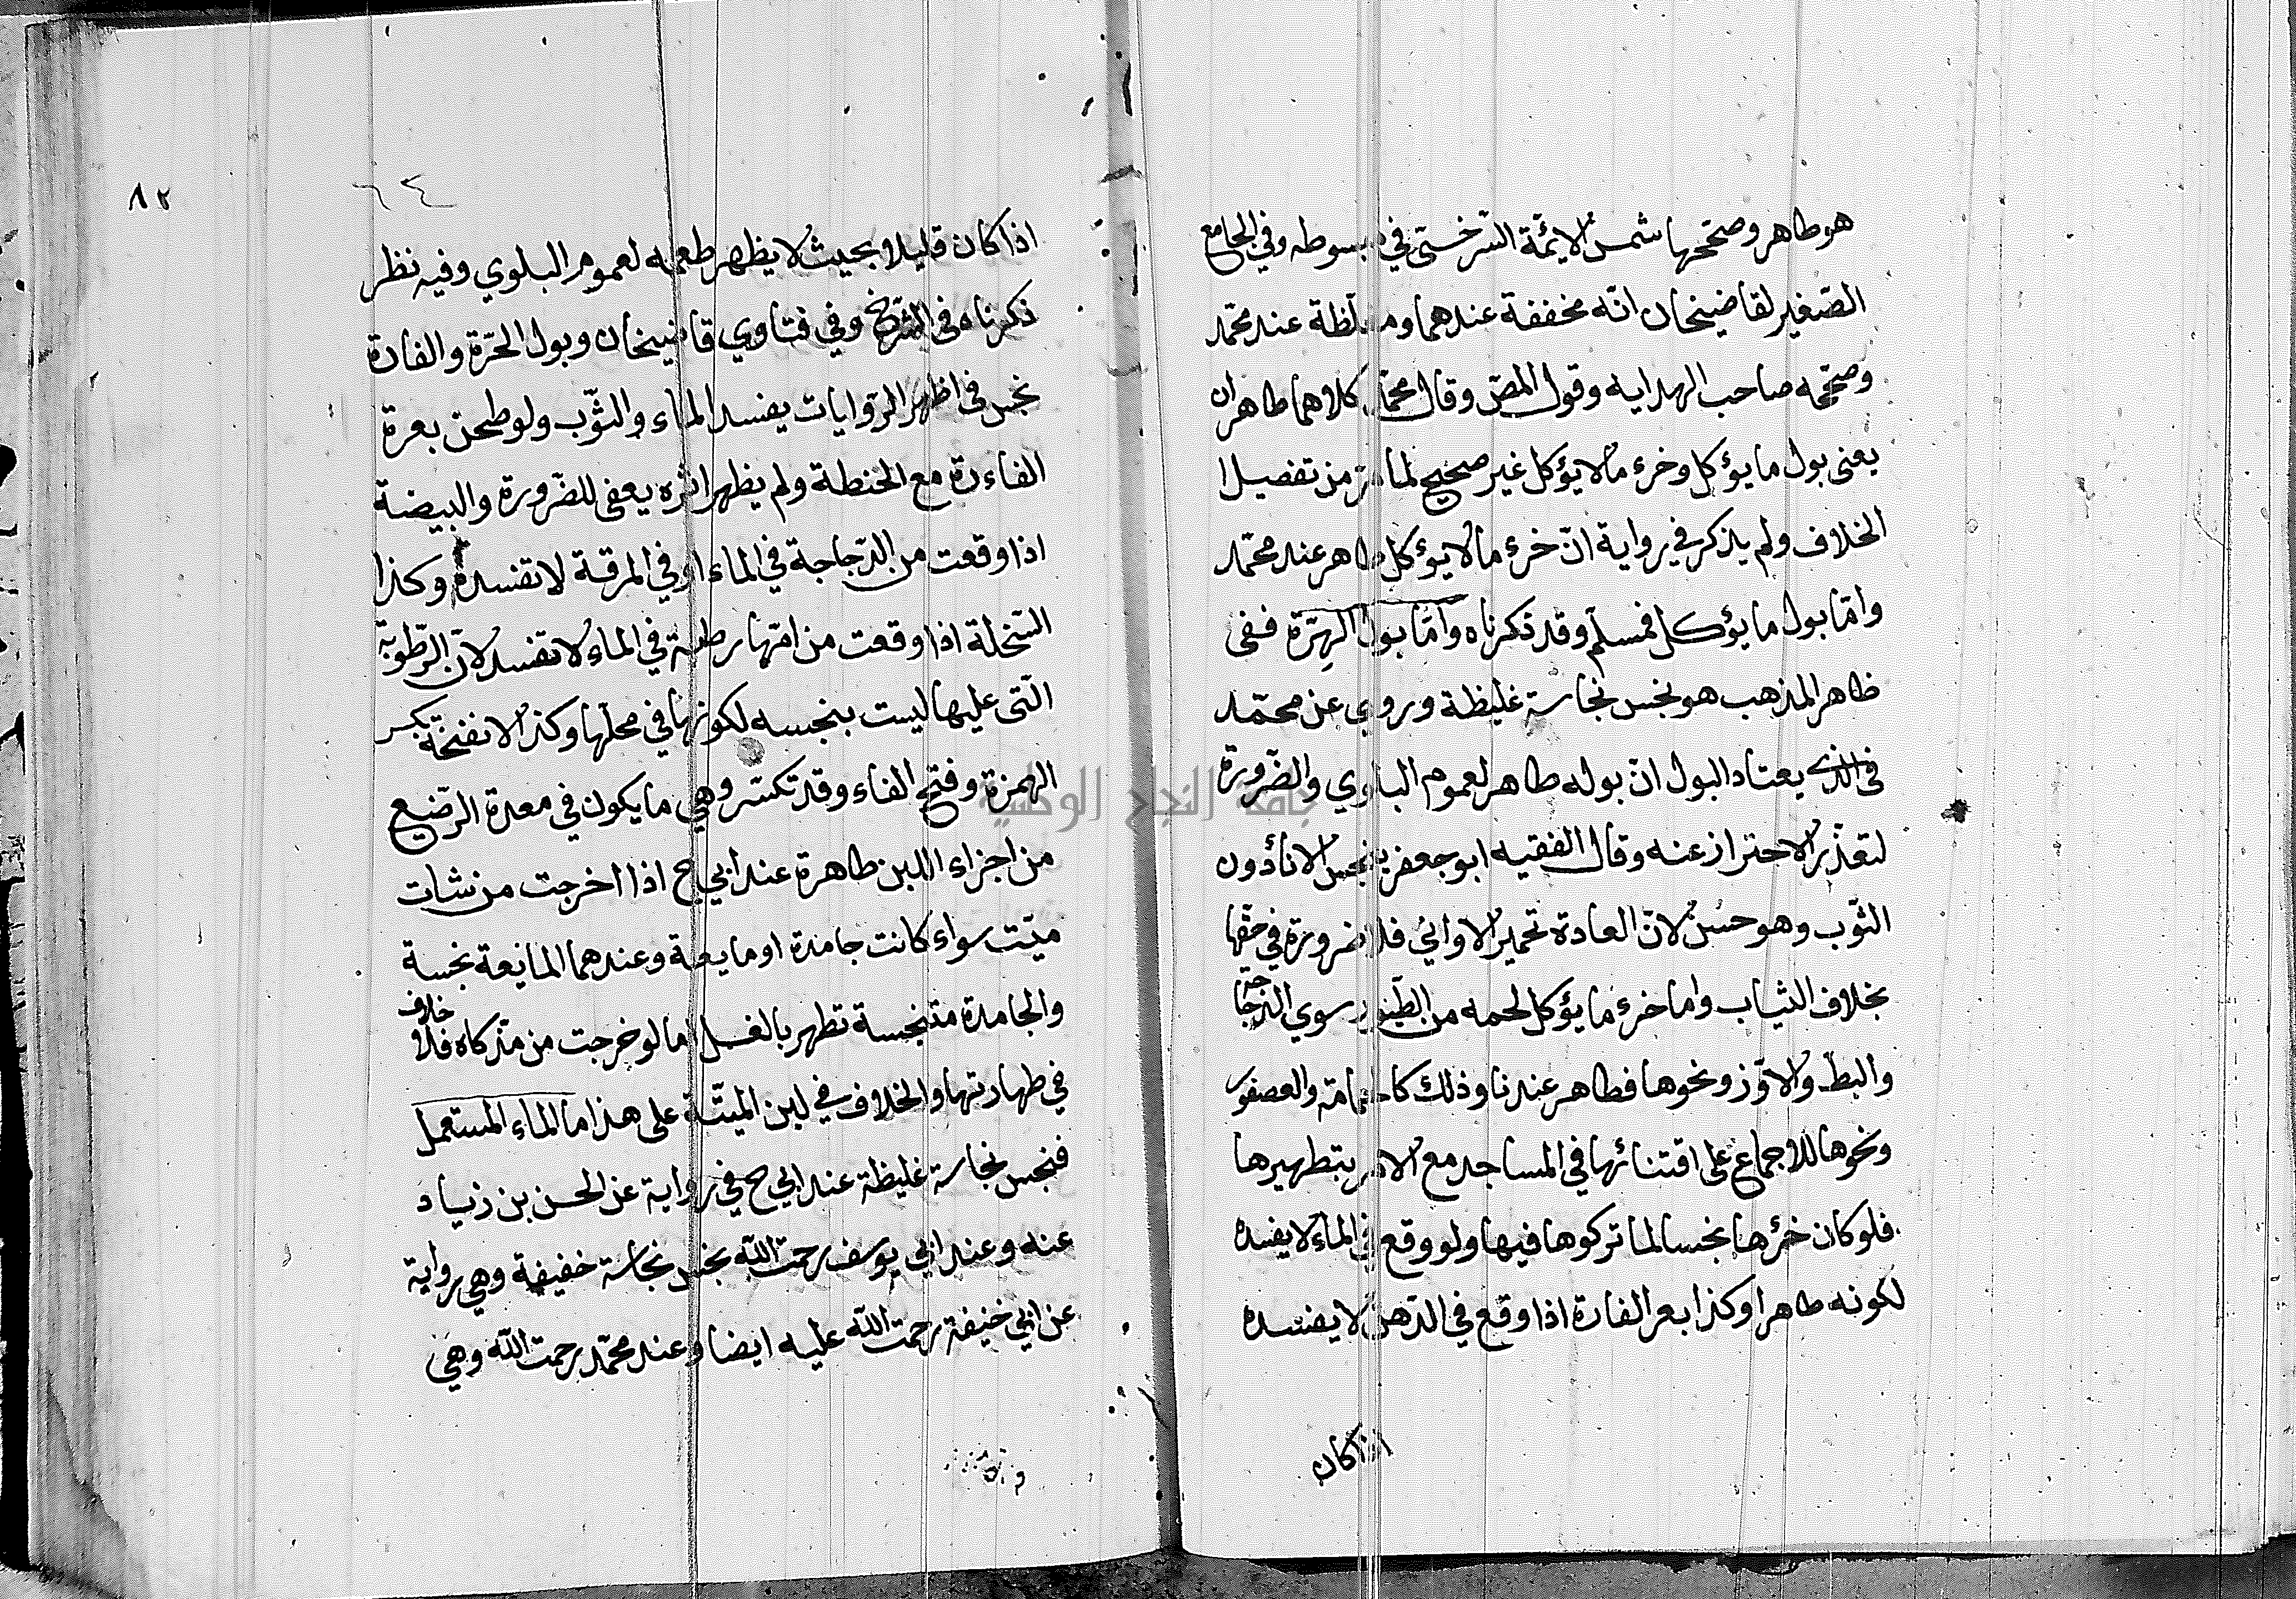 هو طاهر وصححها شمس الائمة السرخسي في مبسوطه وفي الجامع
الصغير لقاضيخان انه مخففة عندهما ومغلظة عند محمد
وصححه صاحب الهدايه وقول المص وقال محمد كلاهما طاهران
يعنى بول ما يؤكل وخرء ما لا يؤكل غير صحيح لما مر من تفصيل
الخلاف ولم يذكر في رواية ان خرء ما لا يؤكل طاهر عند محمد
واما بول ما يؤكل فمسلم وقد ذكرناه واما بول الهرة ففى
ظاهر المذهب هو نجس نجاسة غليظة وروي عن محمد
فى الذى يعتاد البول ان بوله طاهر لعموم البلوي والضرورة
لتعذر الاحتراز عنه وقال الفقيه ابو جعفر ينجس الاناء دون
الثوب وهو حسن لان العادة تخمير الاواني فلا ضرورة في حقها
بخلاف الثياب واما خرء ما يؤكل لحمه من الطيور سوي الدجاجة
والبط والاوز ونحوها فطاهر عندنا وذلك كالحمامة والعصفور
ونحوها للاجماع على اقتنائها في المساجد مع الامر بتطهيرها
فلو كان خرؤها نجسا لما تركوها فيها ولو وقع في الماء لا يفسده
لكونه طاهرا وكذا بعر الفارة اذا وقع في الدهن لا يفسده
اذا كان
٨٢
٦٤
اذا كان قليلا بحيث لا يظهر طعمه لعموم البلوي وفيه نظر
ذكرناه فى الشرح وفي فتاوي قاضيخان وبول الهرة والفارة
نجس فى اظهر الروايات يفسد الماء والثوب ولو طحن بعرة
الفاءرة مع الحنطة ولم يظهر اثره يعفى للضرورة والبيضة
اذا وقعت من الدجاجة في الماء او في المرقة لا تفسده وكذا
السخلة اذا وقعت من امها رطبة في الماء لا تفسد لان الرطوبة
التى عليها ليست بنجسه لكونها في محلها وكذا الانفخة بكسر
الهمزة وفتح الفاء وقد تكسر وهي ما يكون في معدة الرضيع
من اجزاء اللبن طاهرة عند ابي ح اذا اخرجت من شات
ميت سواء كانت جامدة او مايعة وعندهما المايعة نجسة
والجامدة متنجسة تطهر بالغسل اما لو خرجت من مذكاه فلا خلاف
في طهارتها والخلاف في لبن الميتة على هذا اما الماء المستعمل
فنجس نجاسة غليظة عند ابي ح في رواية عن الحسن بن زياد
عنه وعند ابي يوسف رحمت الله نجس نجاسة خفيفة وهي رواية
عن ابي حنيفة رحمت الله عليه ايضا وعند محمد رحمت الله وهي
جامعة النجاح الوطنية